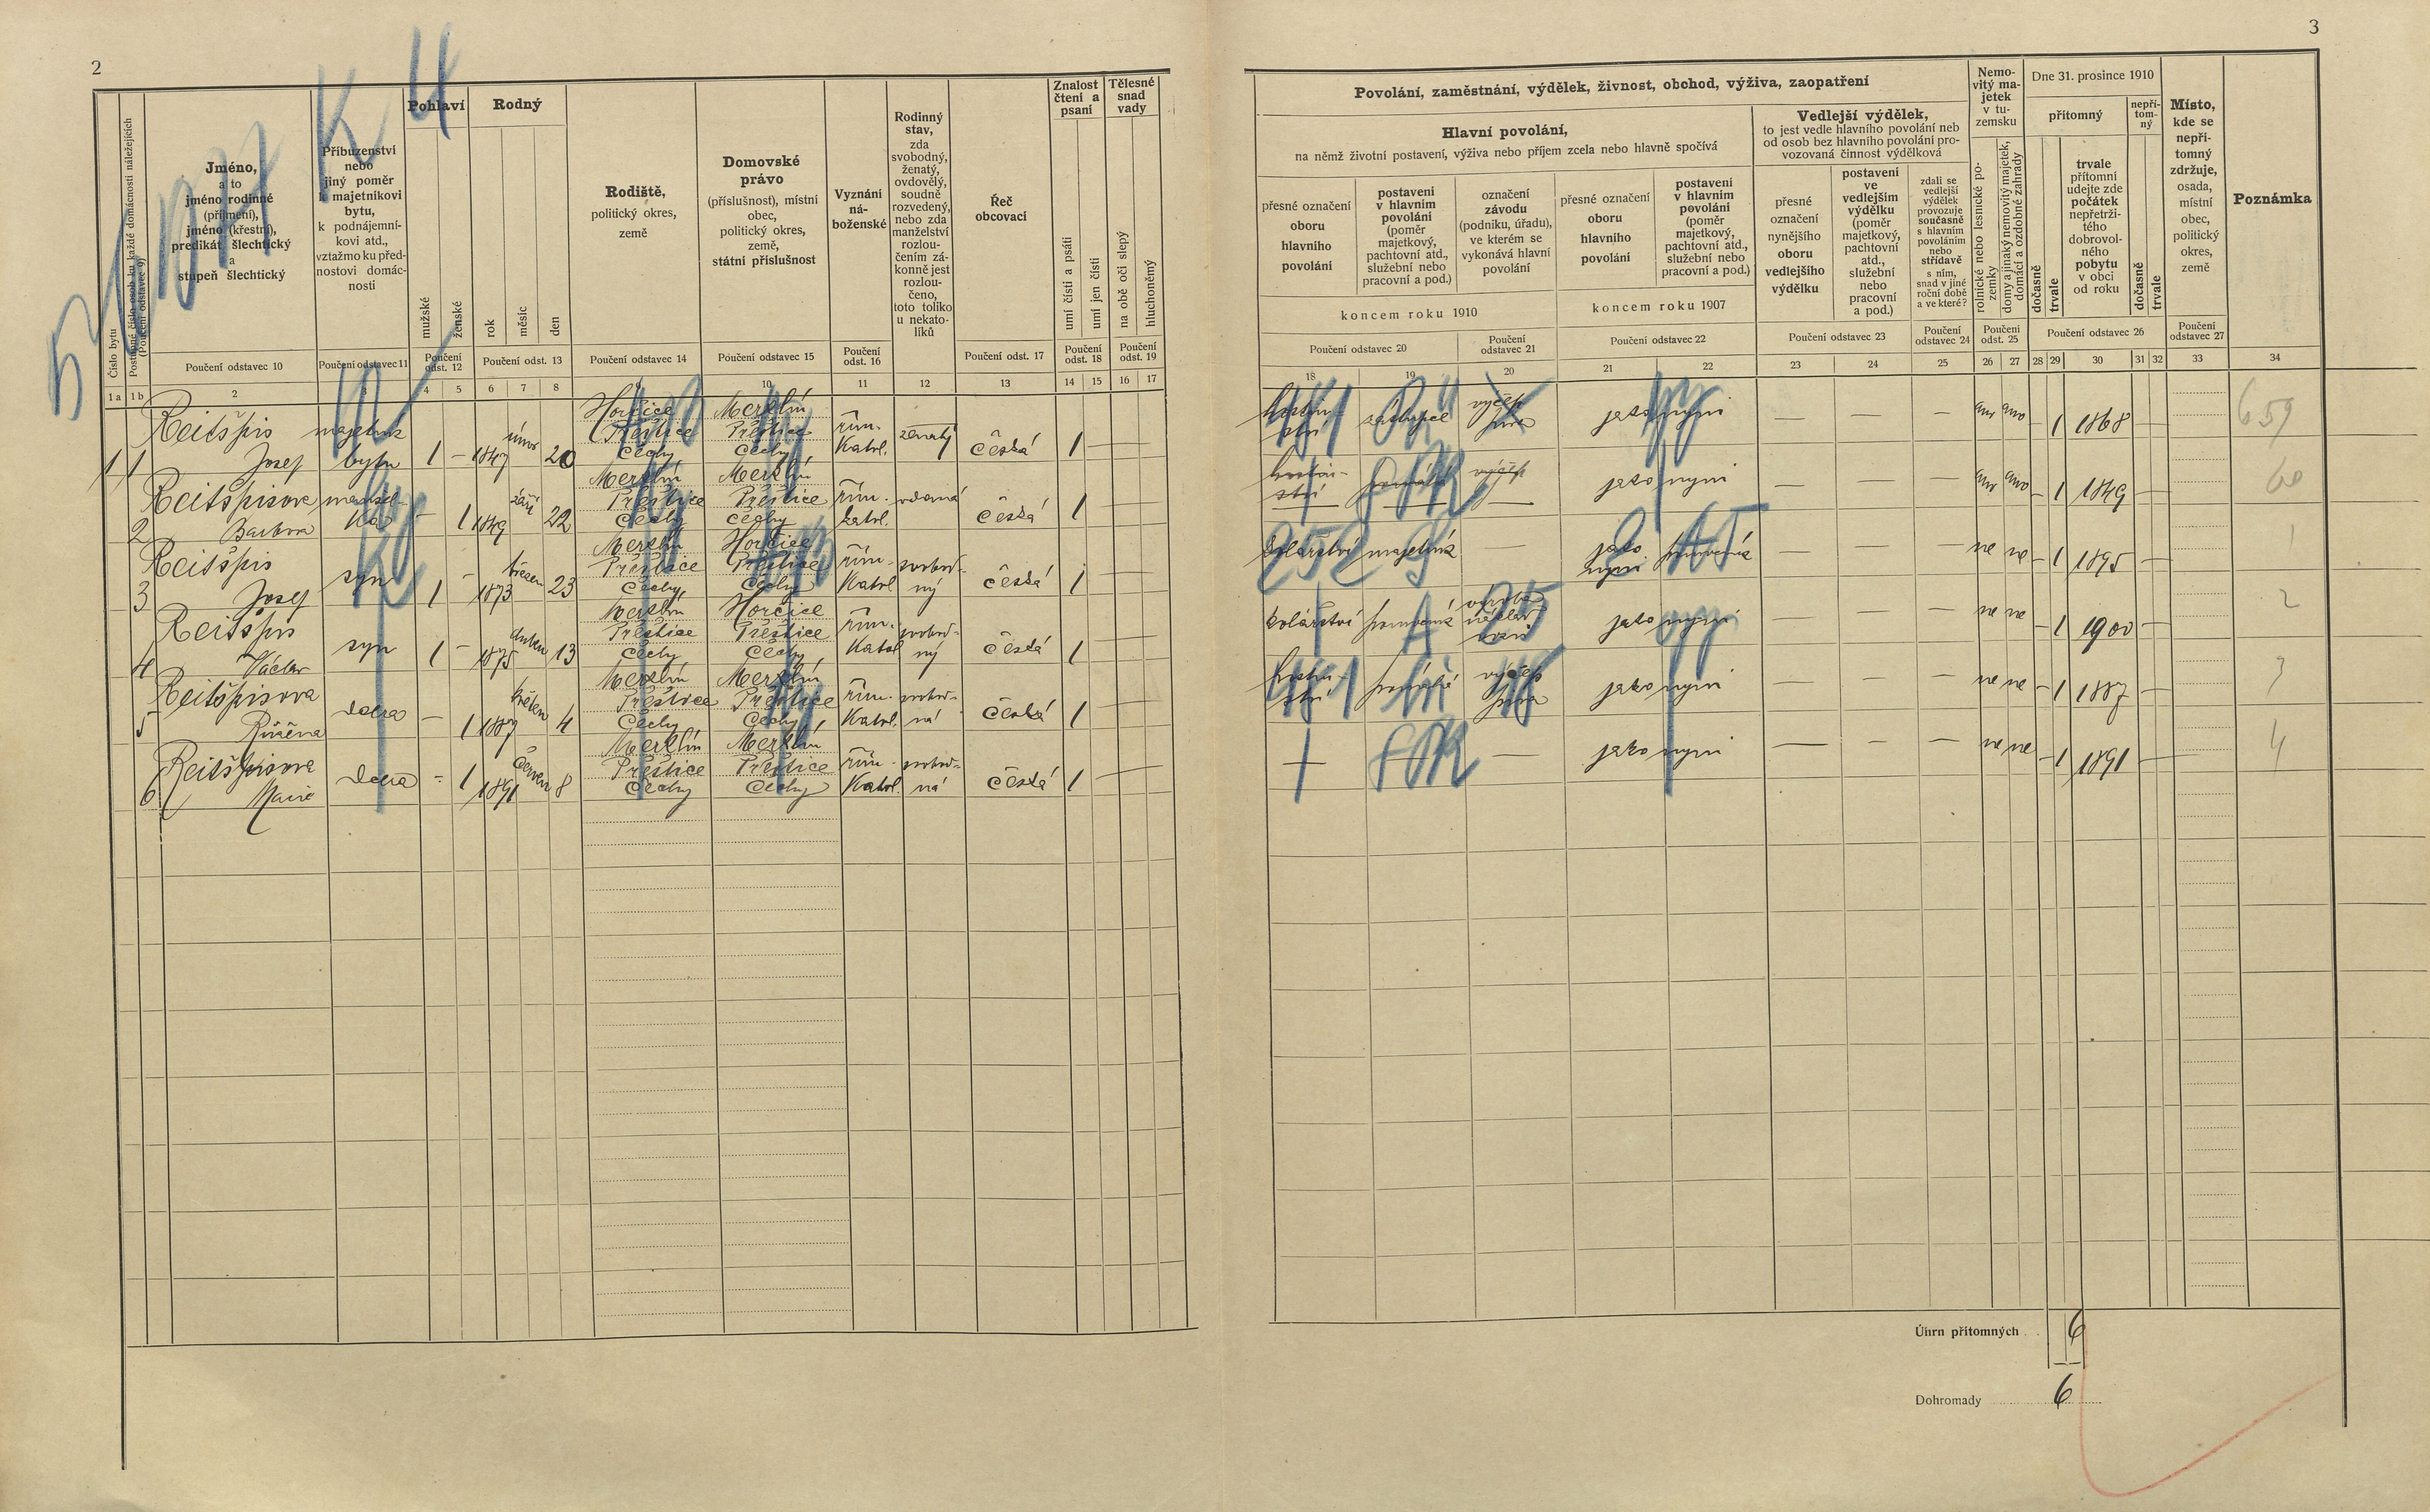 2
Číslo bytu
Postupné číslo osob ku každé domácnosti náležejících
(Poučení odstavec 9)
Jméno,
a to
jméno rodinné
(příjmení),
jméno (křestní),
predikát šlechtický
a
stupeň šlechtický
Příbuzenství
nebo
jiný poměr
k majetníkovi
bytu,
k podnájemní-
kovi atd.,
vztažmo ku před-
nostovi domác-
nosti
Pohlaví
mužské
ženské
Rodný
rok
měsíc
den
Rodiště,
politický okres,
země
Domovské
právo
(příslušnost), místní
obec,
politický okres,
země,
státní příslušnost
Vyznání
ná-
boženské
Rodinný
stav,
zda
svobodný,
ženatý,
ovdovělý,
soudně
rozvedený,
nebo zda
manželství
rozlou-
čením zá-
konně jest
rozlou-
čeno,
toto toliko
u nekato-
líků
Řeč
obcovací
Znalost
čtení a
psaní
umí čísti a psáti
umí jen čísti
Tělesné
snad
vady
na obě oči slepý
hluchoněmý
Poučení odstavec 10
Poučení odstavec 11
Poučení
odst. 12
Poučení odst. 13
Poučení odstavec 14
Poučení odstavec 15
Poučení
odst. 16
Poučení odst. 17
Poučení
odst. 18
Poučení
odst. 19
1a 1b 2 3 4 5 6 7 8 9 10 11 12 13 14 15 16 17
Reitšpis majetník únor Horčice Merklín řím.
Přeštice Přeštice ženatý
1 1 Josef bytu 1 – 1847 20 Čechy Čechy Katol. česká 1
Reitšpisova manžel- září Merklín Merklín
Přeštice Přeštice řím. vdaná
2 Barbora ka – 1 1849 22 Čechy Čechy katol. česká 1
Reitšpis březen Merklín Horčice
syn Přeštice Přeštice řím. svobod-
3 Josef 1 – 1873 23 Čechy Čechy Katol ný česká 1
Reitšpis duben Merklín Horčice
syn Přeštice Přeštice řím. svobod-
4 Václav 1 – 1875 13 Čechy Čechy Katol ný česká 1
Reitšpisova květen Merklín Merklín
dcera Přeštice Přeštice řím. svobod-
5 Růžena – 1 1887 4 Čechy Čechy Katol. ná česká 1
Reitšpisova červen Merklín Merklín
dcera Přeštice Přeštice řím. svobod-
6 Marie – 1 1891 8 Čechy Čechy Katol. ná česká 1
3
Povolání, zaměstnání, výdělek, živnost, obchod, výživa, zaopatření
Hlavní povolání,
na němž životní postavení, výživa nebo příjem zcela nebo hlavně spočívá
přesné označení
oboru
hlavního
povolání
postavení
v hlavním
povolání
(poměr
majetkový,
pachtovní atd.,
služební nebo
pracovní a pod.)
označení
závodu
(podniku, úřadu),
ve kterém se
vykonává hlavní
povolání
koncem roku 1910
přesné označení
oboru
hlavního
povolání
postavení
v hlavním
povolání
(poměr
majetkový,
pachtovní atd.,
služební nebo
pracovní a pod.)
koncem roku 1907
Vedlejší výdělek,
to jest vedle hlavního povolání neb
od osob bez hlavního povolání pro-
vozovaná činnost výdělková
přesné
označení
nynějšího
oboru
vedlejšího
výdělku
postavení
ve
vedlejším
výdělku
(poměr
majetkový,
pachtovní
atd.,
služební
nebo
pracovní
a pod.)
zdali se
vedlejší
výdělek
provozuje
současně
s hlavním
povoláním
nebo
střídavě
s ním,
snad v jiné
roční době
a ve které?
Nemo-
vitý ma-
jetek
v tu-
zemsku
rolnické nebo lesnické po-
zemky
domy a jinaký nemovitý majetek,
domácí a ozdobné zahrady
Dne 31. prosince 1910
přítomný
dočasně
trvale
trvale
přítomní
udejte zde
počátek
nepřetrži-
tého
dobrovol-
ného
pobytu
v obci
od roku
nepří-
tom-
ný
dočasně
trvale
Místo,
kde se
nepří-
tomný
zdržuje,
osada,
místní
obec,
politický
okres,
země
Poznámka
Poučení odstavec 20
Poučení
odstavec 21
Poučení odstavec 22
Poučení odstavec 23
Poučení
odstavec 24
Poučení
odst. 25
Poučení odstavec 26
Poučení
odstavec 27
18 19 20 21 22 23 24 25 26 27 28 29 30 31 32 33 34
výčep
piva jako nyní – – – ano ano – 1 1868 – 659
jako nyní – – – ano ano – 1 1849 – 60
kolářství majetník jako
nyní – – – ne ne – 1 1895 – 1
kolářství jako nyní – – ne ne – 1 1900 – 2
výčep
piva jako nyní – – – ne ne – 1 1887 – 3
– – jako nyní – – – ne ne – 1 1891 – 4
Úhrn přítomných 6
Dohromady 6